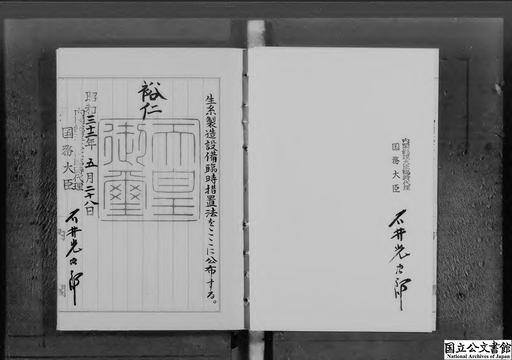 生糸製造設備臨時措置法をここに公布する。
裕仁
天皇
御璽
昭和三十三年五月二十八日
内閣総理大臣臨時代理
国務大臣 石井光次郎
内閣総理大臣臨時代理
国務大臣 石井光次郎
国立公文書館
National Archives of Japan